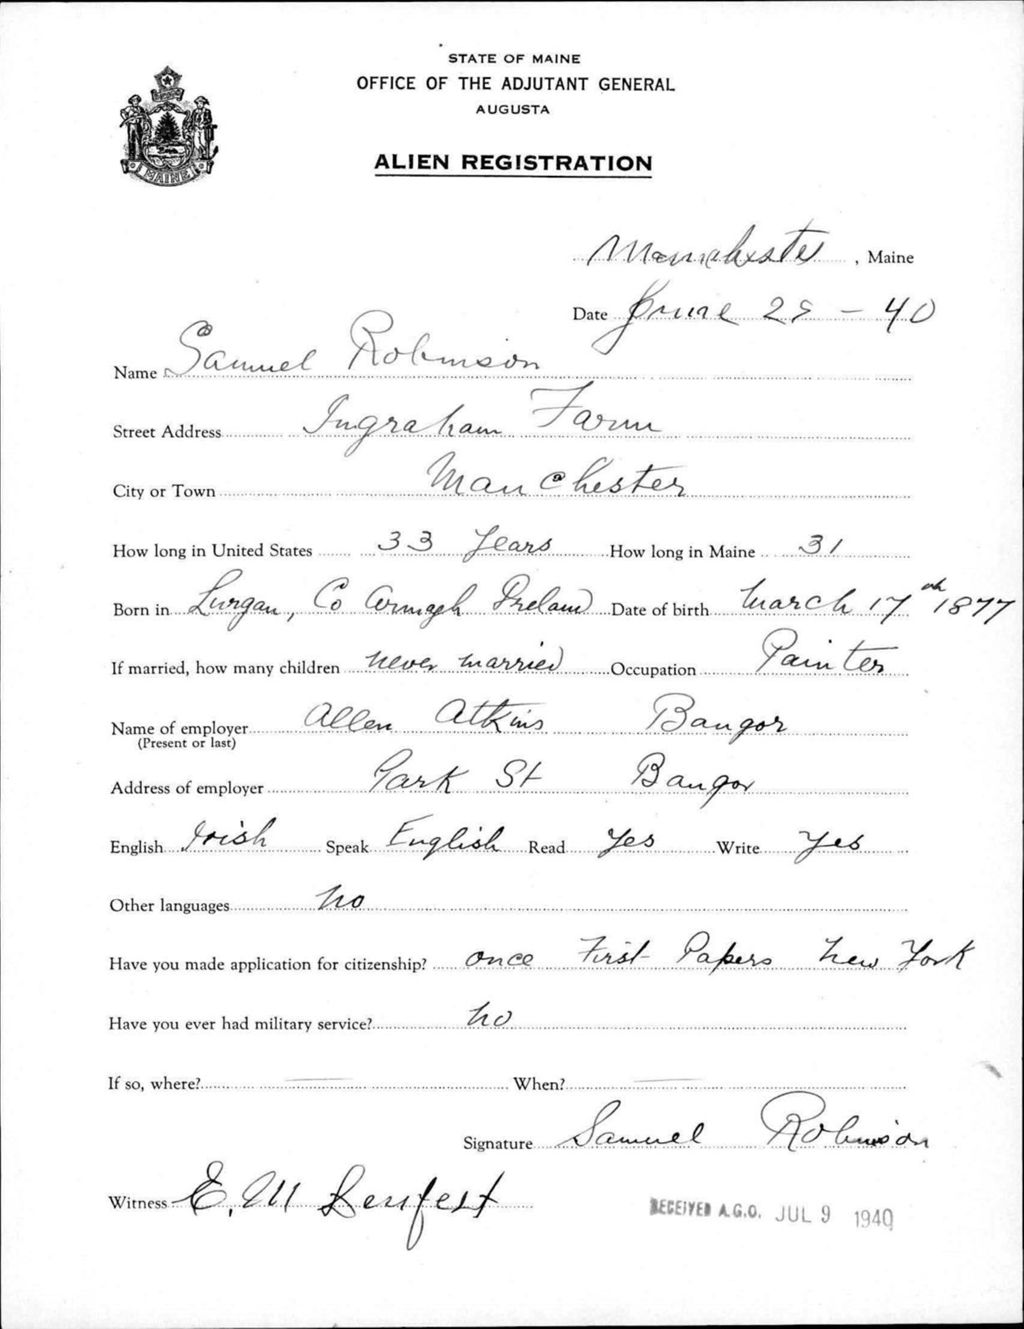 STATE OF MAINE
OFFICE OF THE ADJUTANT GENERAL
AUGUSTA
MAINE
ALIEN REGISTRATION
Manchester, Maine
Date June 29 - 40
Name Samuel Robinson
Street Address Ingraham Farm
City or Town Manchester
How long in United States 33 Years How long in Maine 31
Born in Lurgan, Co Armagh Ireland Date of birth March 17th 1877
If married, how many children never married Occupation Painter
Name of employer Allen Atkins Bangor
(Present or last)
Address of employer Park St Bangor
English Irish Speak English Read Yes Write Yes
Other languages No
Have you made application for citizenship? once First Papers New York
Have you ever had military service? No
If so, where? — When? —
Signature Samuel Robinson
Witness E. M
RECEIVED A.G.O. JUL 9 1940